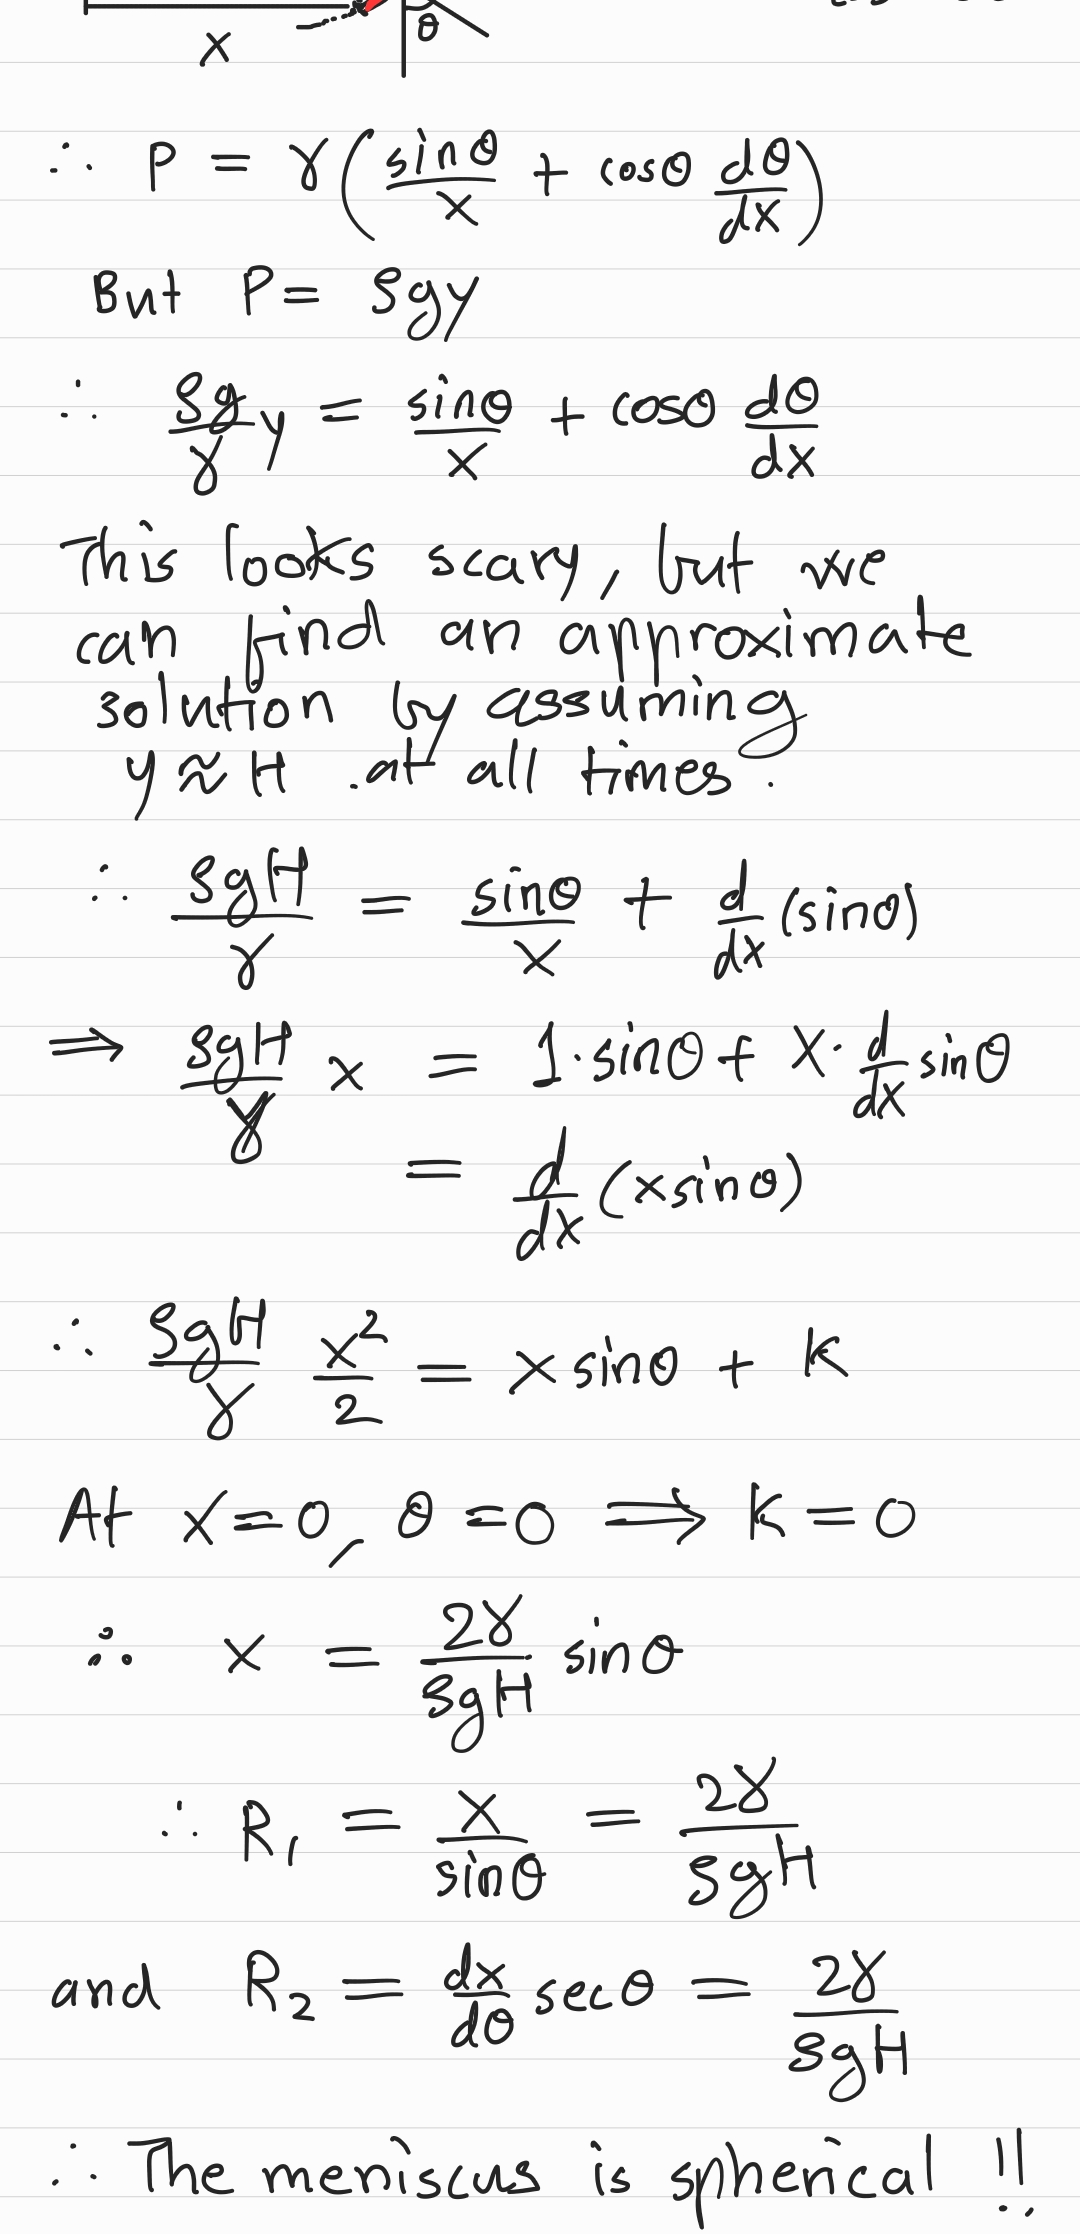 x θ
∴ P = γ(sinθ/x + cosθ dθ/dx)
But P = ρgy
∴ ρg/γ y = sinθ/x + cosθ dθ/dx
This looks scary, but we
can find an approximate
solution by assuming
y ≈ H at all times.
∴ ρgH/γ = sinθ/x + d/dx (sinθ)
⇒ ρgH/γ x = 1·sinθ + x·d/dx sinθ
= d/dx (x sinθ)
∴ ρgH/γ x²/2 = x sinθ + K
At x=0, θ=0 ⇒ K=0
∴ x = 2γ/ρgH sinθ
∴ R₁ = x/sinθ = 2γ/ρgH
and R₂ = dx/dθ secθ = 2γ/ρgH
∴ The meniscus is spherical !!